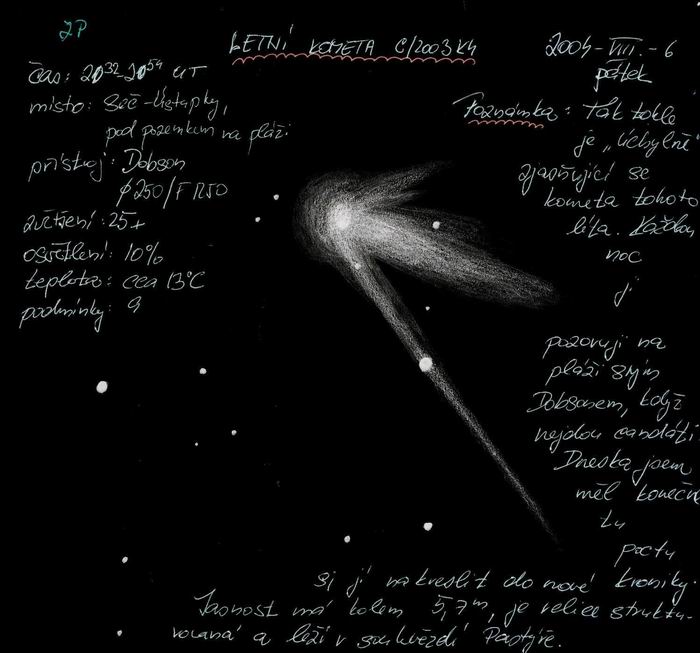 ZP
LETNÍ KOMETA C/2003 K4
2004-VIII.-6
pátek
čas: 20³² 20⁵⁴ UT
místo: Seč-Ústupky,
pod pozemkem na pláži
přístroj: Dobson
ϕ250/F1250
zvětšení: 25x
osvětlení: 10%
teplota: cca 13°C
podmínky: 9
Poznámka: Tak tohle
je „úchylně“
zjasňující se
kometa tohoto
léta. Každou
noc
ji
pozoruji na
pláži svým
Dobsonem, když
nejdou candáti.
Dneska jsem
měl konečně
tu
poctu
si jí nakreslit do nové kroniky.
Jasnost má kolem 5,7ᵐ, je velice struktu-
rovaná a leží v souhvězdí Pastýře.